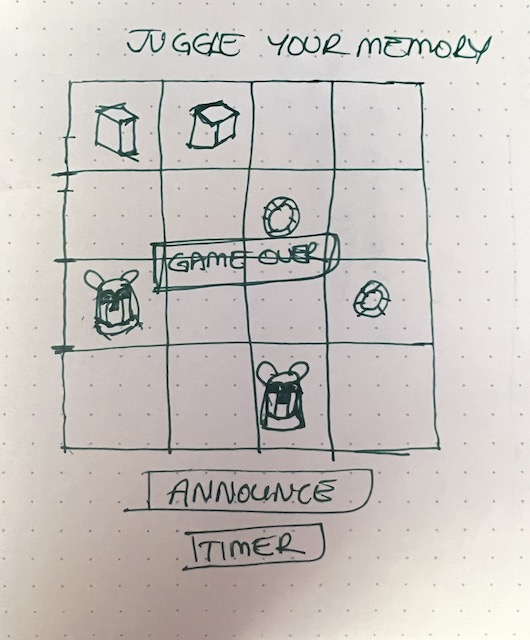 JUGGLE YOUR MEMORY
GAME OVER
ANNOUNCE
TIMER